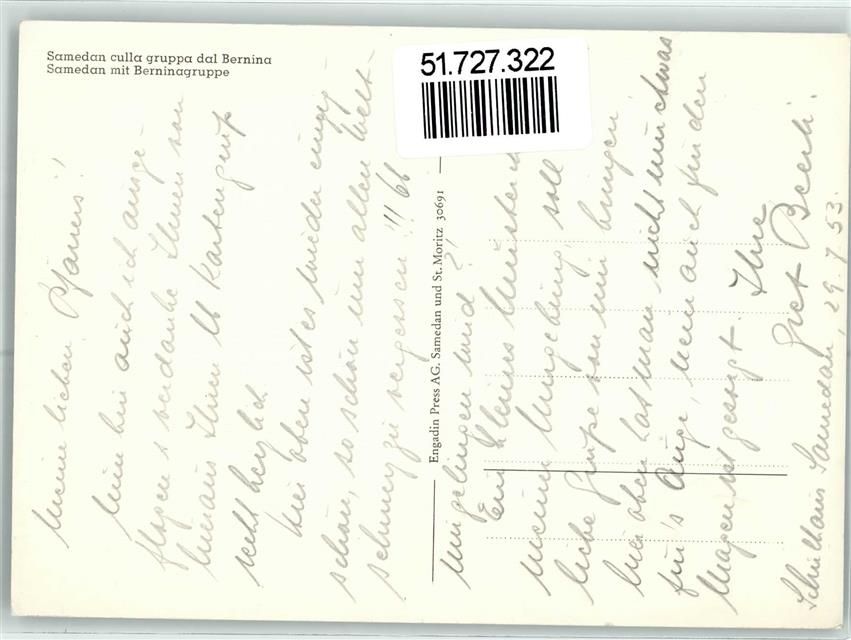 Samedan culla gruppa dal Bernina
Samedan mit Berninagruppe
51.727.322
Engadin Press AG. Samedan und St. Moritz 30691
Meine lieben Pfarrers!
Nun bin auch ich ausge-
flogen & verdanke Ihnen von
hieraus Ihren lb Kartengruß
recht herzlich.
Hier oben ist es wieder einzig
schön, so schön um allen Welt-
schmerz zu vergessen!!! Ob
mir gelingen wird?!
Ein kleines Muster
meiner Umgebung, soll
liebe Grüße von mir bringen.
Hier oben hat man nicht nur etwas
für's Auge, nein auch für den
Magen ist gesorgt. Ihre
Gret Beerli.
Schulhaus Samedan, 29.7.53.